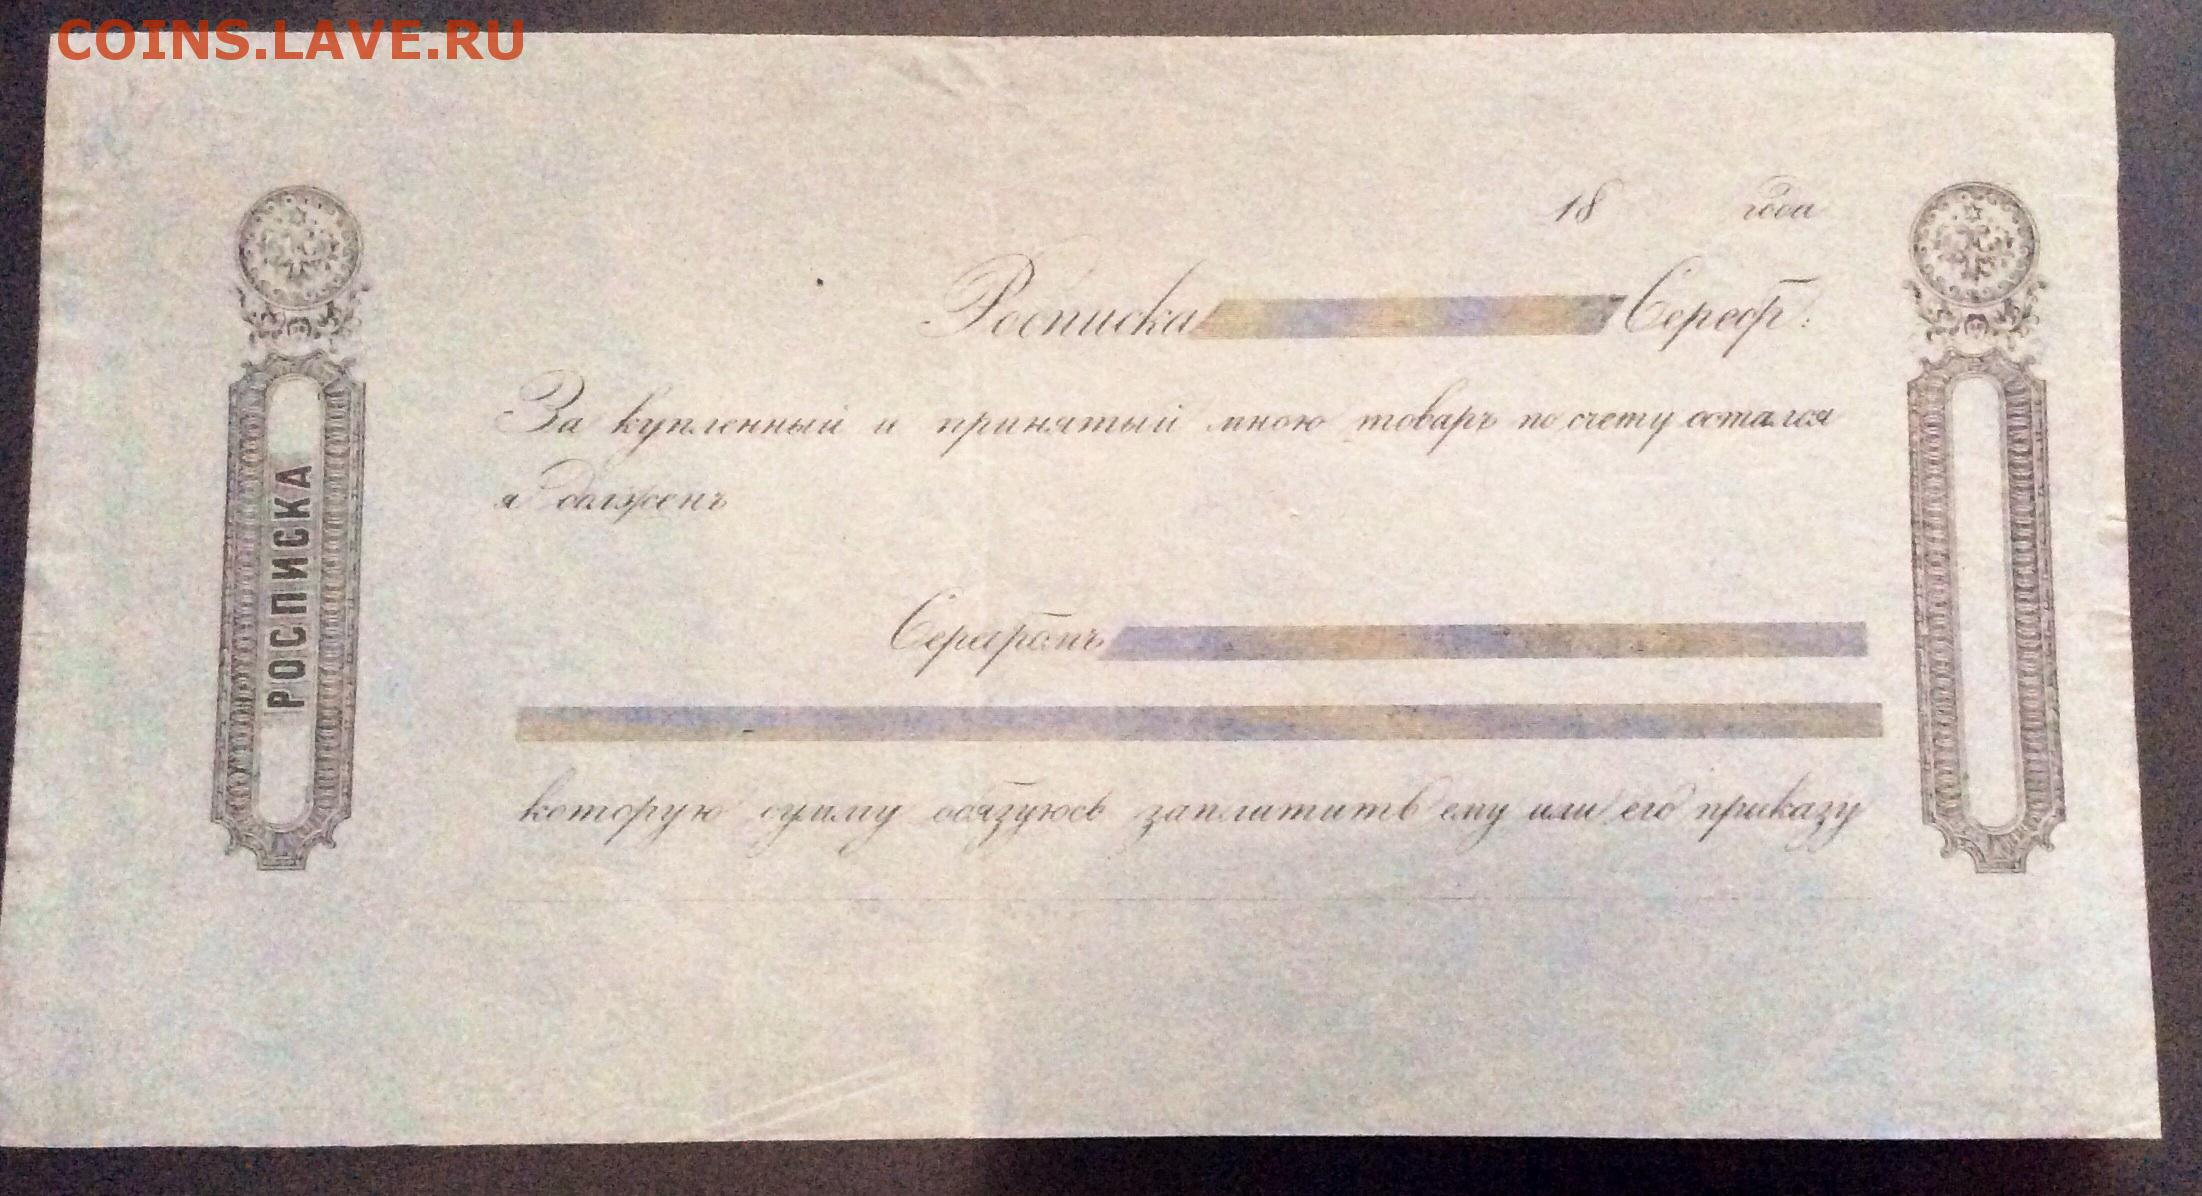 COINS.LAVE.RU
18 года
Росписка Серебр:
За купленный и принятый мною товаръ по счету остался
я долженъ
Серебромъ
которую сумму обязуюсь заплатить ему или его приказу
РОСПИСКА